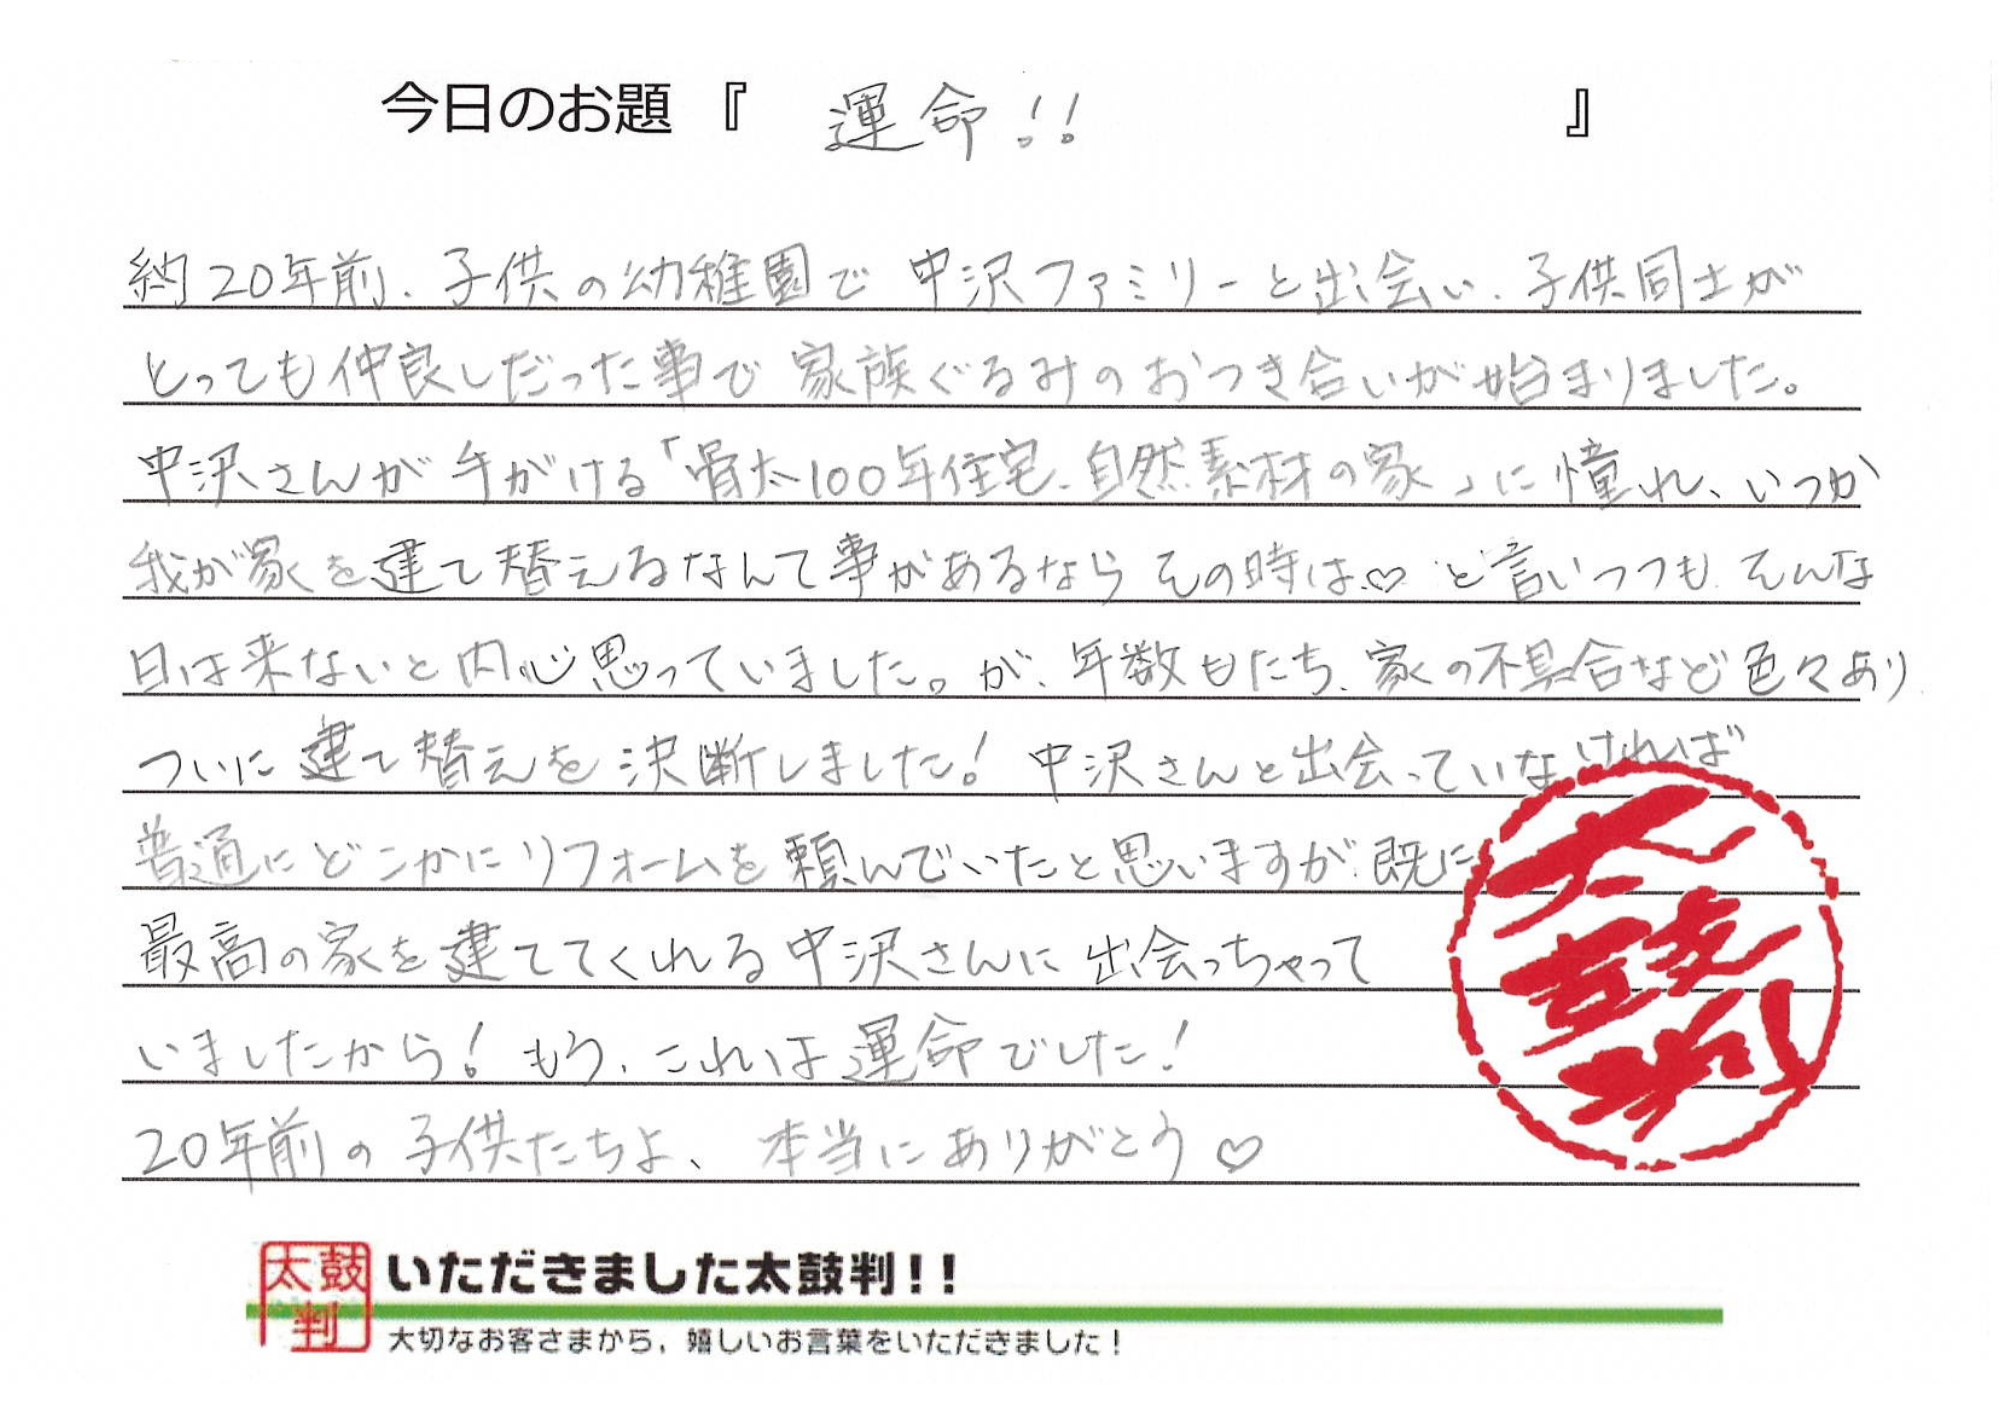 今日のお題『 運命!! 』
約20年前、子供の幼稚園で中沢ファミリーと出会い、子供同士が
とっても仲良しだった事で家族ぐるみのおつき合いが始まりました。
中沢さんが手がける「骨太100年住宅、自然素材の家」に憧れ、いつか
我が家を建て替えるなんて事があるならその時は♡と言いつつも、そんな
日は来ないと内心思っていました。が、年数もたち、家の不具合など色々あり
ついに建て替えを決断しました!中沢さんと出会っていなければ
普通にどこかにリフォームを頼んでいたと思いますが、既に
最高の家を建ててくれる中沢さんに出会っちゃって
いましたから!もう、これは運命でした!
20年前の子供たちよ、本当にありがとう♡
太鼓判
太鼓判
いただきました太鼓判!!
大切なお客さまから、嬉しいお言葉をいただきました!